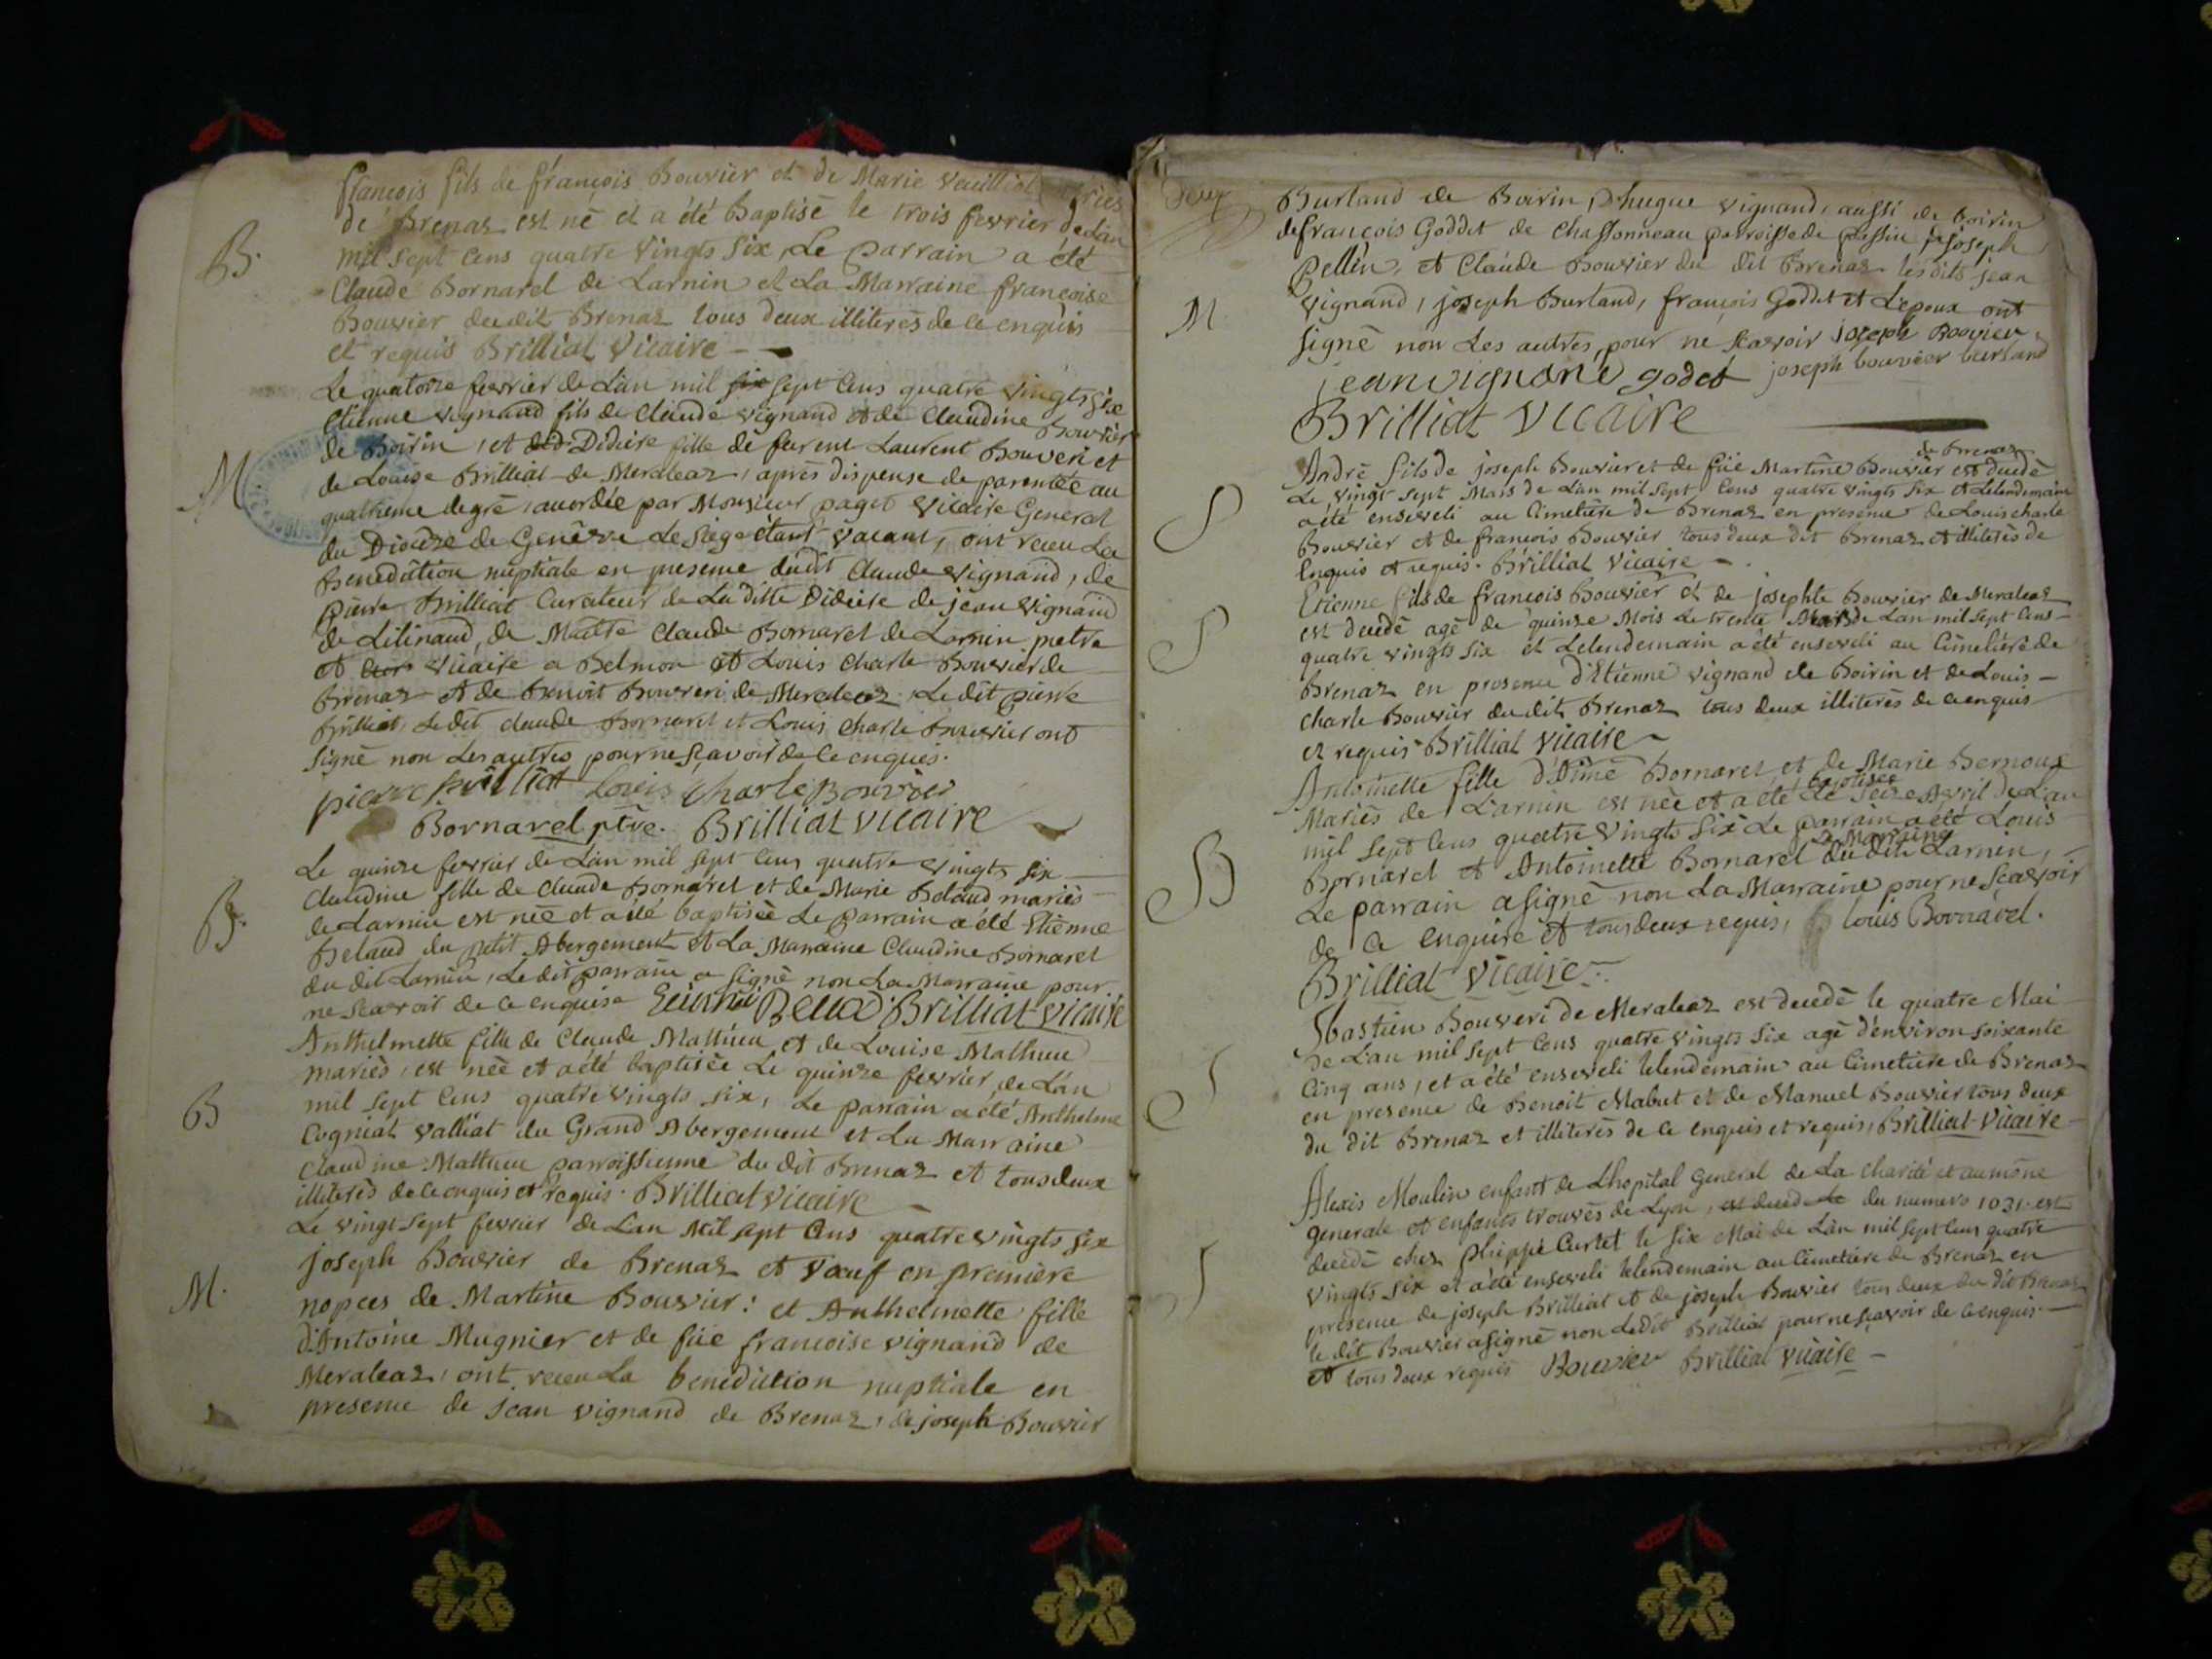 françois fils de françois Bouvier et de Marie
de Brenaz est né et a été Baptisé le trois fevrier de L'an
mil sept Cens quatre vingts six, Le parrain a été
B.
Claude Bornarel de Larnin et La Marraine françoise
Bouvier dudit Brenaz tous deux illiterés de ce enquis
et requis Brilliat Vicaire
Le quatorze fevrier de L'an mil six sept Cens quatre vingts six
Etienne vignand fils de Claude vignand et de Claudine Bouvier
de Boirin, et ded Didiere fille de furent Laurent Bouveri et
M
de Louise Brilliat de Meraleaz, après dispense de parentée au
quatrieme degré, accordée par Monsieur paget vicaire General
du Diocèze de Genêve Le siege étant vacant, ont receu La
Benediction nuptiale en presence dudit Claude vignand, de
pierre Brilliat Curateur de La ditte Didiere de jean vignand
de Lilinaud, de Maître Claude Bornarel de Larnin pretre
et vicaire a Belmon et Louis Charle Bouvier de
Brenaz et de Benoit Bouveri de Meraleaz. Le dit pierre
Brilliat, Le dit claude Bornarel et Louis Charle Bouvier ont
signé non Les autres pour ne scavoir de ce enquis.
pierre brilliat Louis Charle Bouvier
Bornarel ptre. Brilliat vicaire
Le quinze fevrier de L'an mil sept Cens quatre vingts six
Claudine fille de Claude Bornarel et de Marie Belaud mariés
de Larnin est née et a été baptisée Le parrain a été Etienne
B.
Belaud du petit Abergement et La Marraine Claudine Bornarel
du dit Larnin, Le dit parrain a signé non La Marraine pour
ne scavoir de ce enquise Brilliat vicaire
Anthelmette fille de Claude Mathieu et de Louise Mathieu
mariés, est née et a été baptisée Le quinze fevrier de L'an
mil sept Cens quatre vingts six, Le parrain a été Anthelme
B
Cogniat valliat du Grand Abergement et La Marraine
Claudine Mathieu parroissienne du dit Brenaz et tous deux
illiterés de ce enquis et requis. Brilliat vicaire
Le vingt sept fevrier de L'an Mil sept Cens quatre vingts six
joseph Bouvier de Brenaz et vœuf en première
M.
nopces de Martine Bouvier: et Anthelmette fille
d'Antoine Mugnier et de füe francoise vignand de
Meraleaz, ont receu La benediction nuptiale en
presence de jean vignand de Brenaz, de joseph Bouvier
deux
Burland de Boirin, D'hugue vignand, aussi de boirin
de françois Goddet de Chassonneau parroisse de de joseph
Pellin, et Claude Bouvier du dit Brenaz les dits jean
M
vignand, joseph Burland, françois Goddet et L'epoux ont
signé non Les autres, pour ne scavoir joseph Bouvier
jean vignand godet joseph bouvier burland
Brilliat vicaire
de Brenaz
André fils de joseph Bouvier et de füe Martine Bouvier est decedé
Le vingt sept Mars de L'an mil sept Cens quatre vingts six et Lelendemain
S
a été enseveli au Cimetiere de Brenaz en presence de Louis charle
Bouvier et de francois Bouvier tous deux dit Brenaz et illiterés de
Enquis et requis. Brilliat vicaire
Etienne fils de francois Bouvier et de josephte Bouvier de Meraleaz
est decedé agé de quinze Mois Le trente Mars de L'an mil sept Cens
S
quatre vingts six et Lelendemain a été enseveli au Cimetiére de
Brenaz en presence d'Etienne vignand de Boirin et de Louis
charle Bouvier du dit Brenaz tous deux illiterés de ce enquis
et requis Brilliat vicaire
Antoinette fille d'Aimé Bornarel et de Marie Bernoux
baptisée
Mariés de Larnin est née et a été Le seize Avril de L'an
mil sept Cens quatre vingts six Le parrain a été Louis
La Marraine
B
Bornarel et Antoinette Bornarel du dit Larnin,
Le parrain a signé non La Marraine pour ne scavoir
de ce enquise et tous deux requis, louis Bornarel.
Brilliat vicaire
Sbastien Bouveri de Meraleaz est decedé le quatre Mai
de L'an mil sept Cens quatre vingts six agé d'environ soixante
S
Cinq ans, et a été enseveli lelendemain au Cimetiere de Brenaz
en presence de Benoit Mabut et de Manuel Bouvier tous deux
du dit Brenaz et illiterés de ce enquis et requis, Brilliat vicaire
Alexis Moulin enfant de Lhopital General de La charité et aumône
generale et enfants trouvés de Lyon, est deced Le du numero 1031. est
S
decedé chez Philippe Curtet le six Mai de L'an mil sept Cens quatre
vingts six et a été enseveli lelendemain au Cimetiere de Brenaz en
presence de joseph Brilliat et de joseph Bouvier tous deux du dit Brenaz
le dit Bouvier a signé non Le dit Brilliat pour ne scavoir de ce enquis
et tous deux requis Bouvier Brilliat vicaire